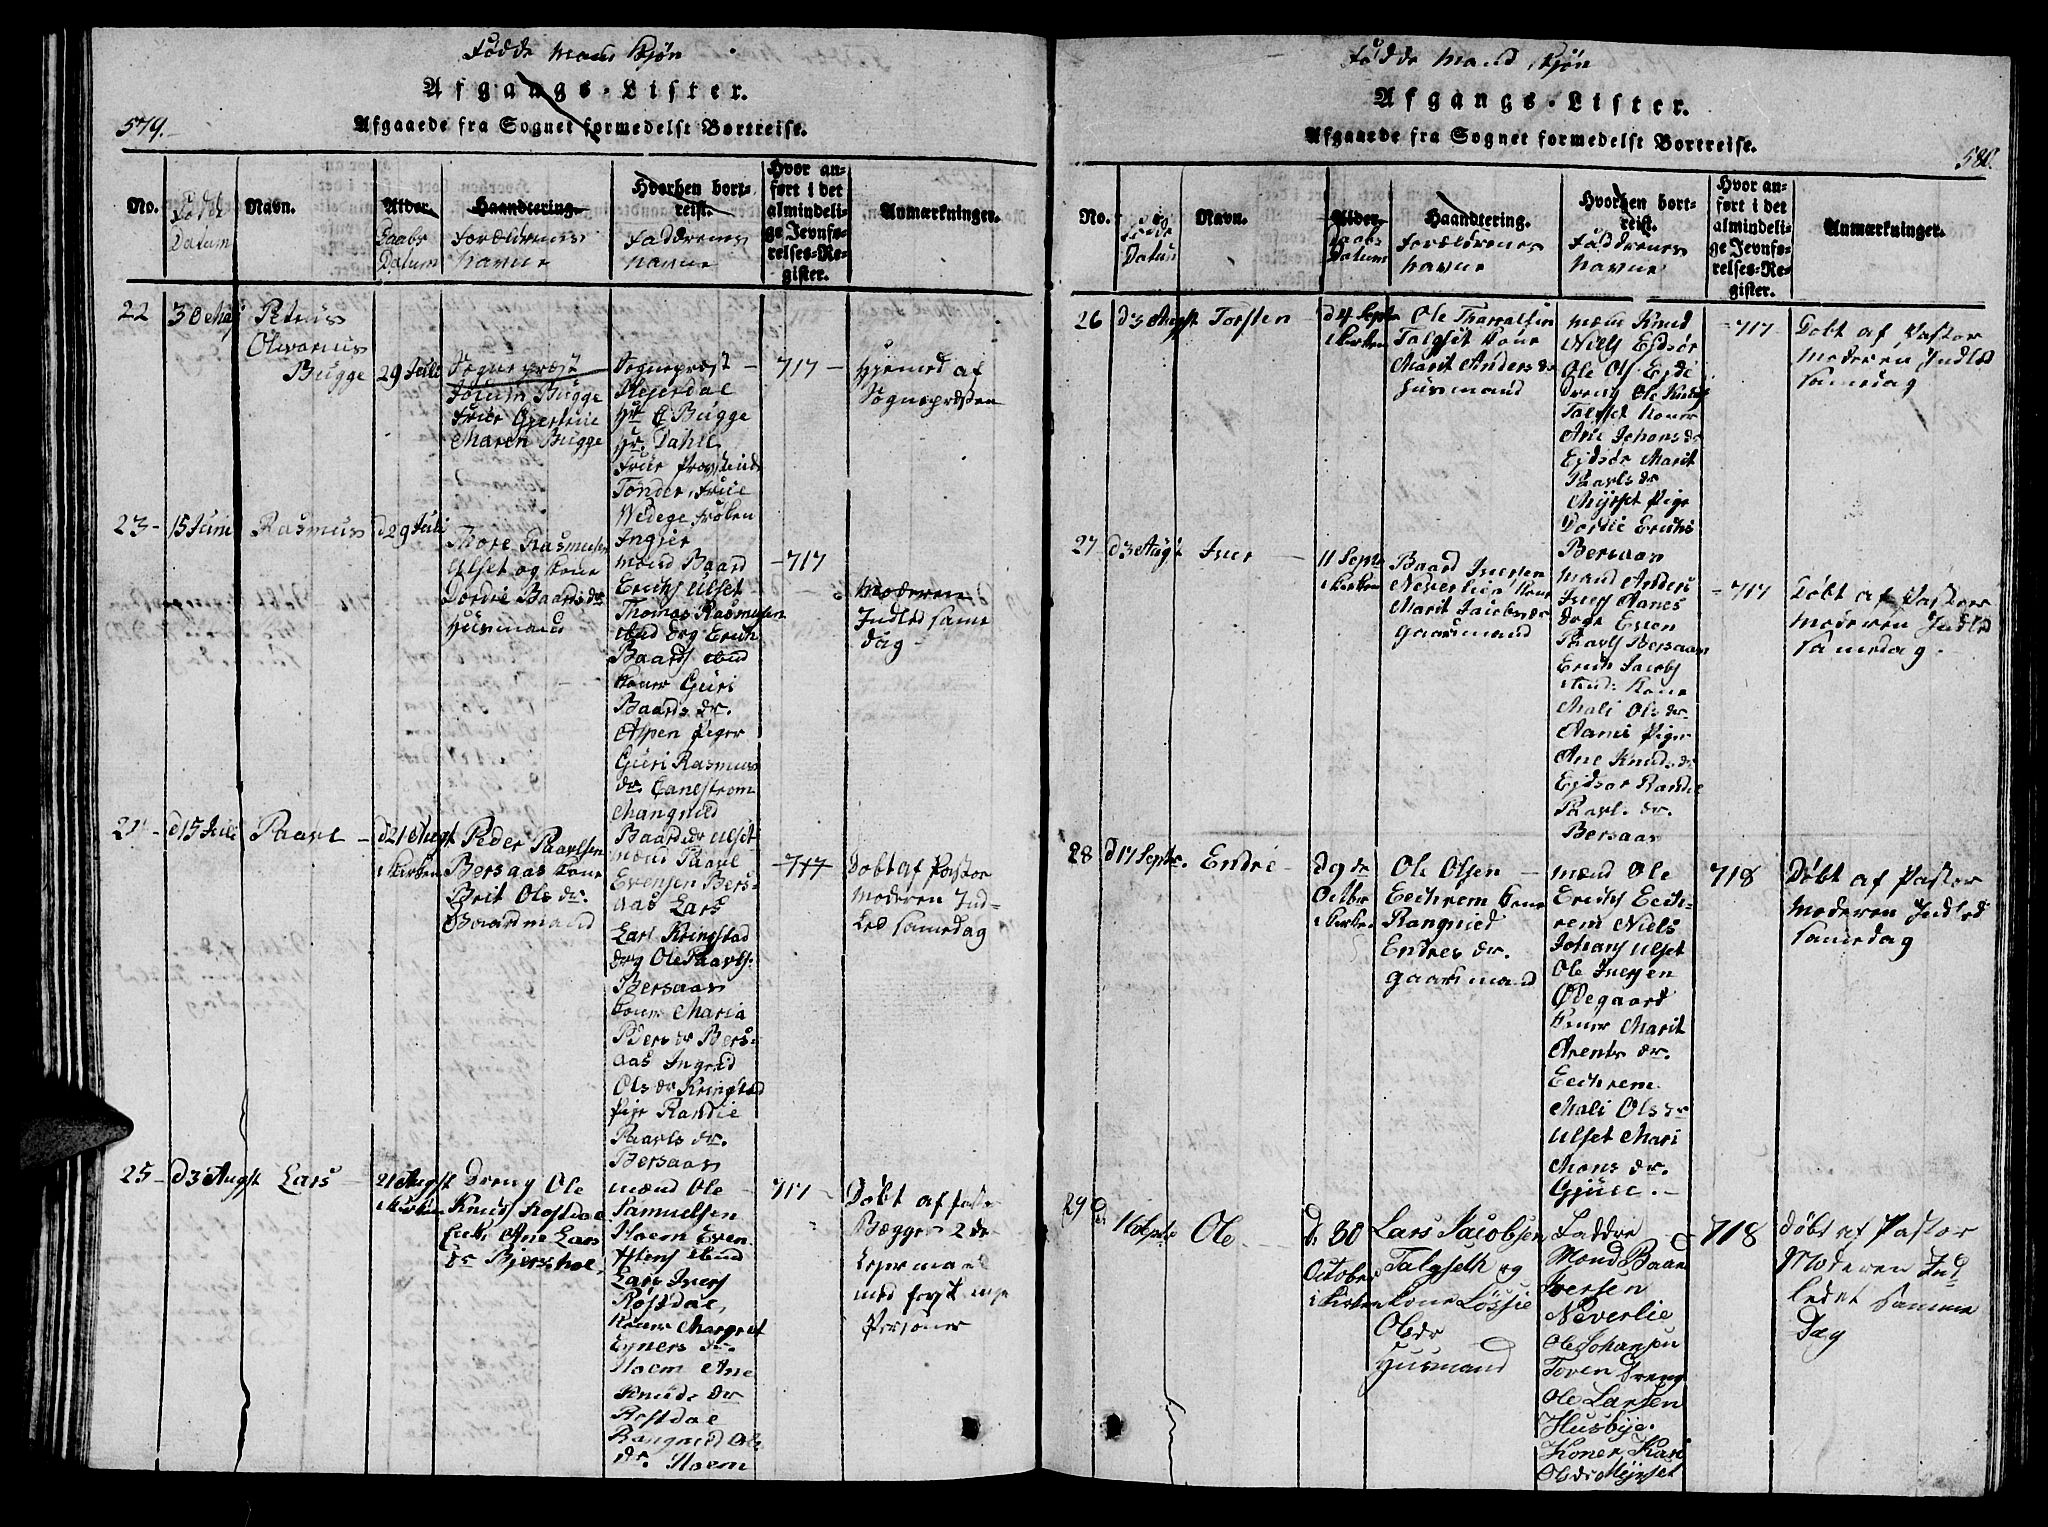 Fødde Mand Kjøn
Afgangs-Lister.
579.
Afgaaede fra Sognet formedelst Bortreise.
No.
Født
Datum
Navn.
Alder.
Daabs
Datum
Haandtering.
Forældrenes
Navne
Hvorhen bort-
reist.
Faddrenes
Navne
Hvor an-
ført i det
almindeli-
ge Jevnfø-
relses-Re-
gister.
Anmærkninger.
22
30 Maj
Petrus
Olivarius
Bugge
29 Juli
Sogneprest
Bugge
Frue Gjertrue
Maren Bugge
Sogneprest
Hejerdal
Hr. C Bugge
Hr. Dahl
Frue
Tønder, Frue
Wedege Frøken
Ingier
717
Hjemed af
Sognepresten
23
15 Juni
Rasmus
d 29 Juli
Thore Rasmusen
Ulset og Kone
Dordie Baardsdr
Husmand
mænd Baard
Erichs Ulset
Thomas Rasmusen
ibid drg Erich
Baards ibid
Koner Guri
Baards dr.
Aspen Piger
Guri Rasmus
dr.
Mangnild
Baardsdr Ulset
717
Moderen
Indled same
dag
24
d 15 Juli
Paavl
d 21 Augst
i Kirken
Peder Paavlsen
Bersaas Kone
Brit Ols dr.
Gaardmand
mænd Paavl
Evensen Bers-
aas Lars
Larl Kringstad
drg Ole Paavls.
Bersaas
Koner Maria
Peders dr Bers-
aas Ingrid
Ols dr Kringstad
Pige Randie
Paavls dr.
Bersaas
717
Døbt af Pastor
Moderen Ind-
led samedag
25
d 3 Augst
Lars
21 Augst
i Kirken
Dreng Ole
Knuds Rostdal
Ane Lars
dr Bjershol
mænd Ole
Samuelsen
Hoem Even
ibid
Lars Ivers
Røstdal,
Koner Margret
Ejners dr.
Hoem Ane
Knuds dr
Rostdal
Rangnild Ols
dr. Hoem
717
Døbt af Pastor
Begges 2 de
Lejermaal
med
Personer
Fødde Mand Kjøn
Afgangs-Lister.
580.
Afgaaede fra Sognet formedelst Bortreise.
No.
Fødde
Datum
Navn.
Alder.
Daabs
Datum
Haandtering.
Forældrenes
Navne
Hvorhen bort-
reist.
Faddrenes
Navne
Hvor an-
ført i det
almindeli-
ge Jevnfø-
relses-Re-
gister.
Anmærkninger.
26
d 3 Augst
Torsten
d 4 Septr
i Kirken
Ole Tharalsen
Talgset Kone
Marit Anders dr
Husmand
mænd Knud
Niels Ejdsør
Ole Ols Ejde
Dreng Ole Knuds
Talgset Koner
Ane Johans dr
Ejdsør Marit
Paavls dr
Myrset Pige
Dordie Erichs
Bersaas
717
Døbt af Pastor
Moderen Indled
samedag
27
d 3 Augst
Iver
11 Septr
i Kirken
Baard Iversen
Neverlien Kone
Marit Jacobs dr
Gaardmand
mænd Anders
Ivers Aanes
drge Even
Paavls Bersaas
Erich Jacobs
ibid: Kone
Mali Ols dr.
Aanes Piger
Ane Knuds dr
Ejdsør Randie
Paavl. dr.
Bersaas
717
Døbt af Pastor
Moderen Indled
samedag
28
d 17 Septr.
Endre
d 9 de
Octbr
i Kirken
Ole Olsen
Eechrem Kone
Rangnied
Endres dr.
Gaardmand
mænd Ole
Erichs Eech-
rem Niels
Johans Ulset
Ole Iversen
Ødegaard
Koner Marit
Arents dr.
Eechrem
Mali Ols dr
Ulset Mari
Mons dr.
718
Døbt af Pastor
Moderen Indled
samedag
29
Ole
d. 30
October
i Kirken
Lars Jacobsen
Talgseth og
Kone Løssie
Olsdr
Husmand
Faddre
Mend Baar
Iversen
Neverlie
Ole Johansen
Toven Dreng
Ole Larsen
Husbye.
Koner Kari
Olsdr Myrset
718
døbt af Pastor
Moderen Ind
ledet samme
Dag